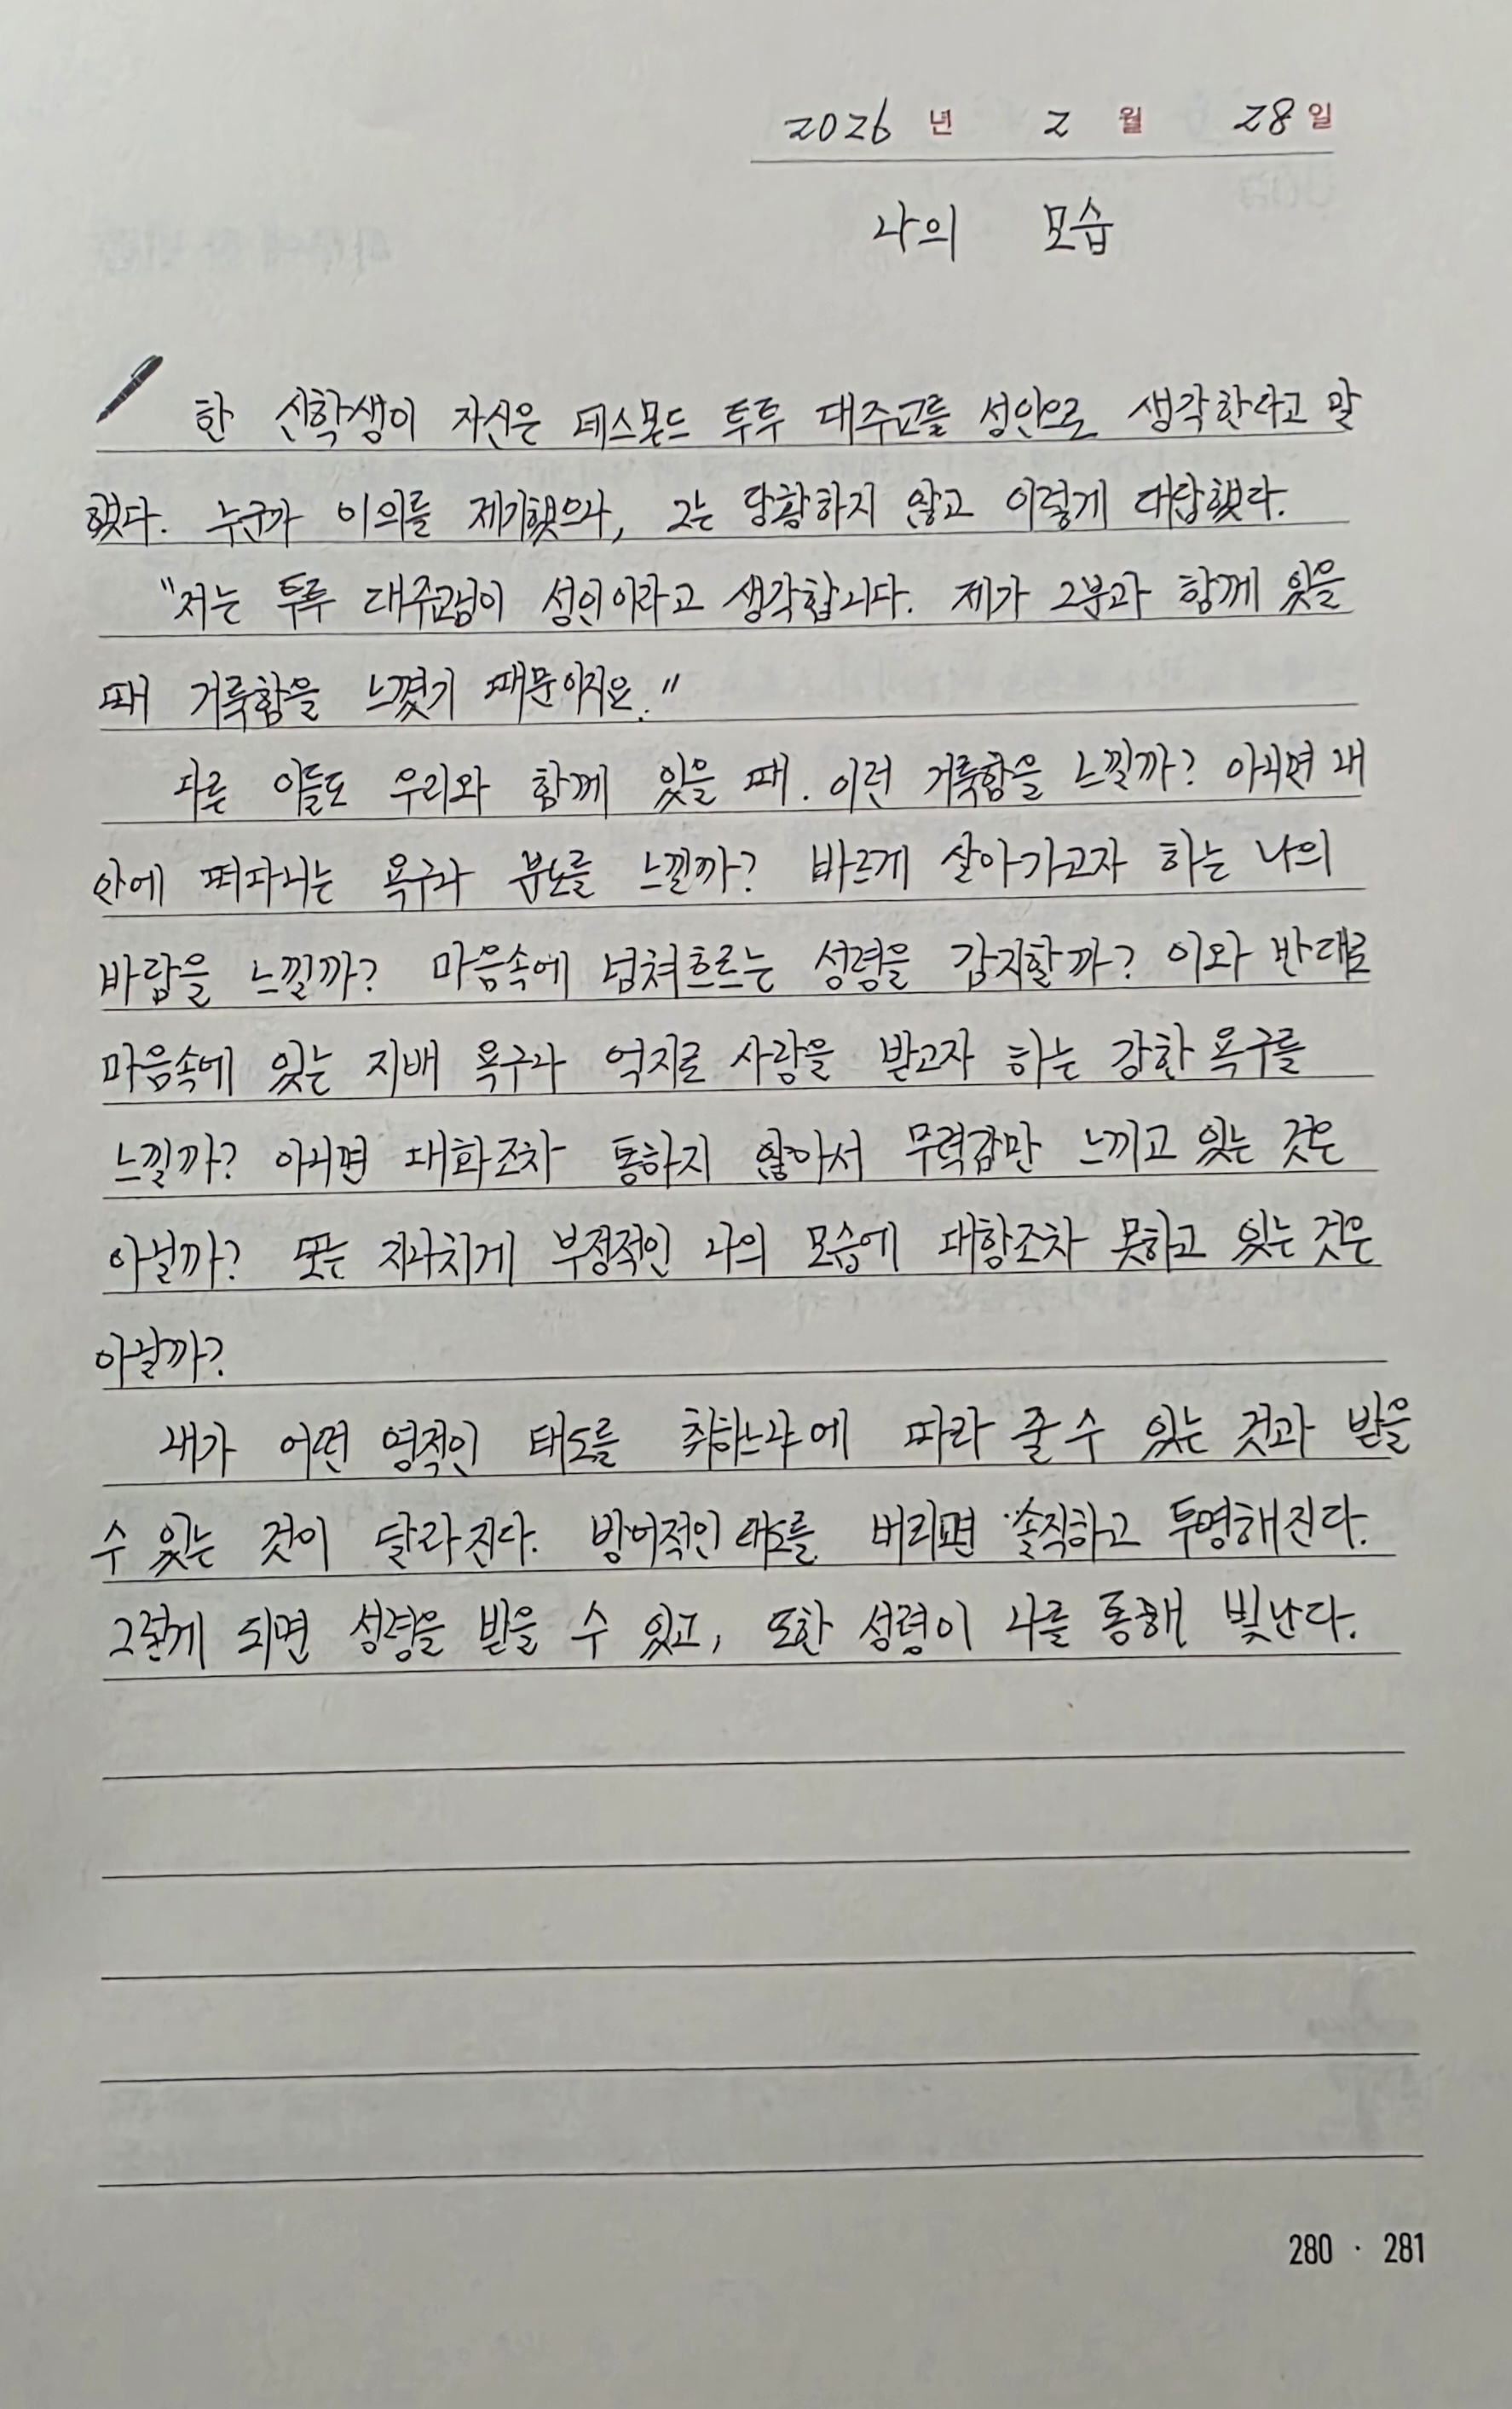 2026 년 2 월 28 일
나의 모습
한 신학생이 자신은 데스몬드 투투 대주교를 성인으로 생각한다고 말
했다. 누군가 이의를 제기했으나, 그는 당황하지 않고 이렇게 대답했다.
"저는 투투 대주교님이 성인이라고 생각합니다. 제가 그분과 함께 있을
때 거룩함을 느꼈기 때문이지요."
다른 이들도 우리와 함께 있을 때. 이런 거룩함을 느낄까? 아니면 내
안에 떠다니는 욕구과 분노를 느낄까? 바르게 살아가고자 하는 나의
바람을 느낄까? 마음속에 넘쳐흐르는 성령을 감지할까? 이와 반대로
마음속에 있는 지배 욕구과 억지로 사랑을 받고자 하는 강한 욕구를
느낄까? 아니면 대화조차 통하지 않아서 무력감만 느끼고 있는 것은
아닐까? 또는 지나치게 부정적인 나의 모습에 대항조차 못하고 있는 것은
아닐까?
내가 어떤 영적인 태도를 취하느냐에 따라 줄 수 있는 것과 받을
수 있는 것이 달라진다. 방어적인 태도를 버리면 솔직하고 투명해진다.
그렇게 되면 성령을 받을 수 있고, 또한 성령이 나를 통해 빛난다.
280 · 281